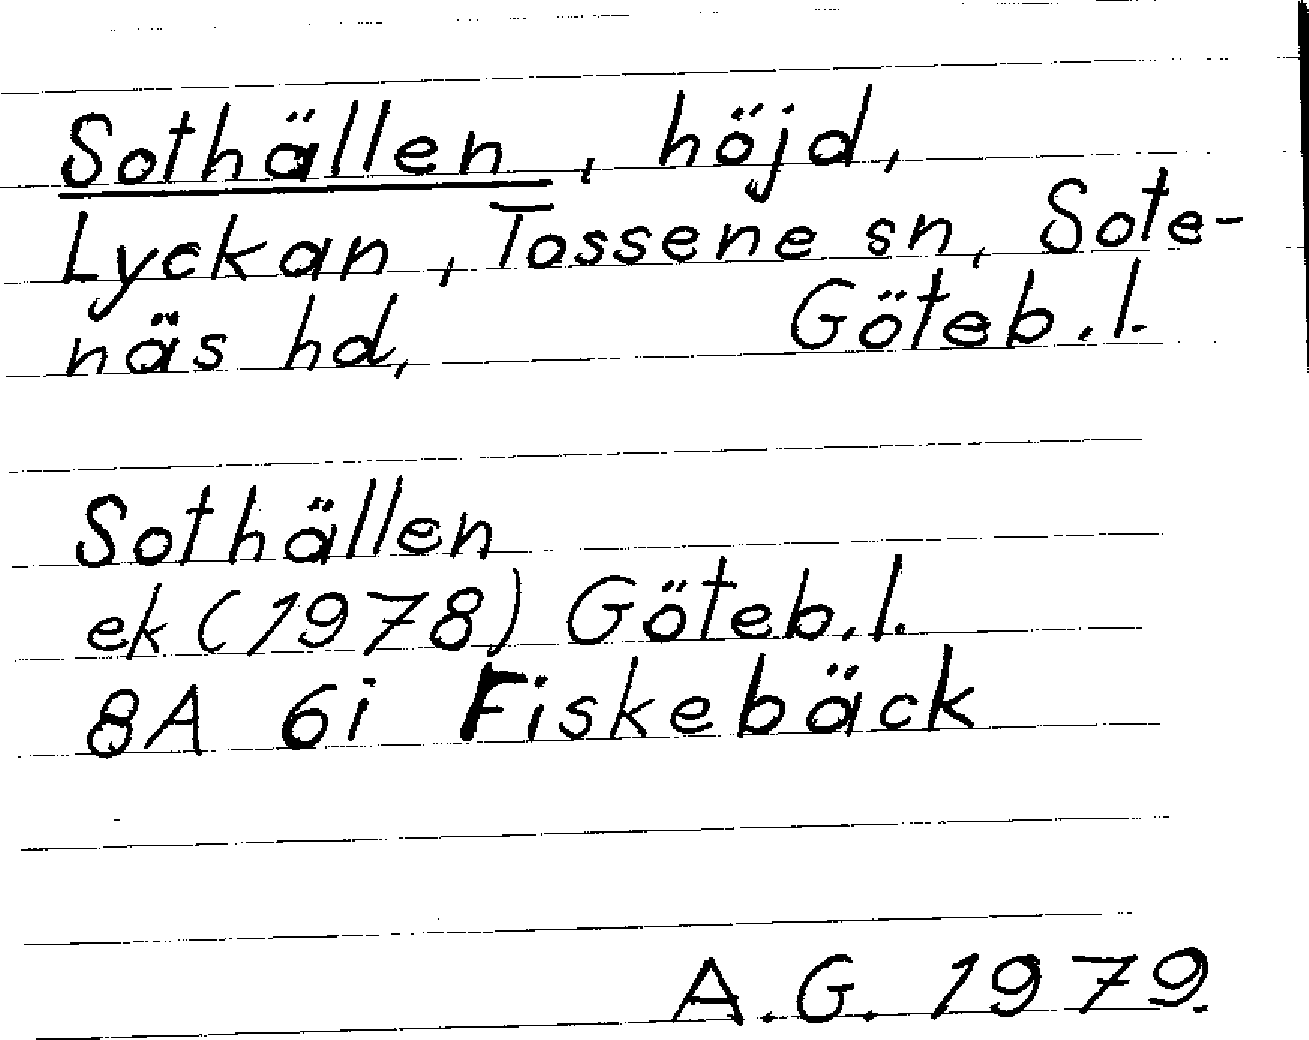 Sothällen, höjd,
Lyckan, Tossene sn, Sote-
näs hd, Göteb.l.
Sothällen
ek (1978) Göteb.l.
8A 6i Fiskebäck
A.G. 1979.